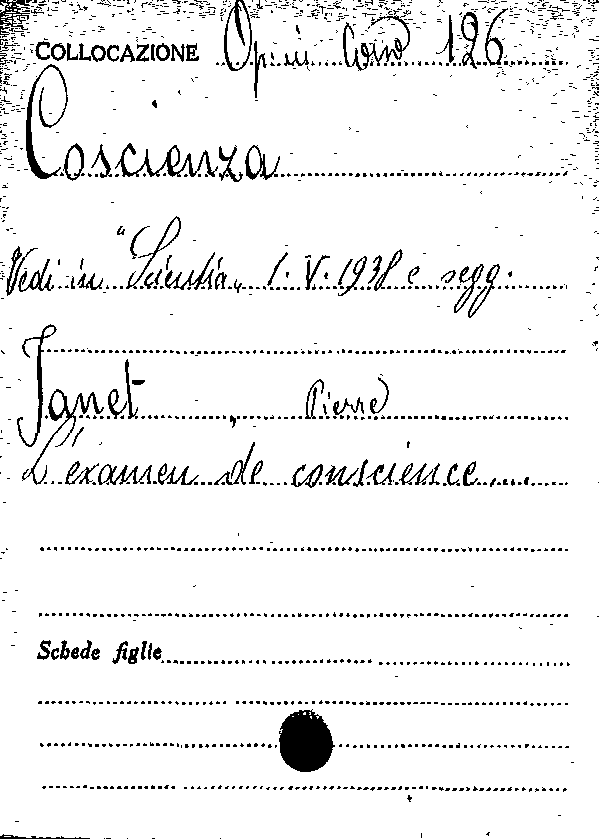 COLLOCAZIONE 126
Coscienza
Vedi in "Scientia" 1. V. 1938 e segg.
Janet, Pierre
L'examen de conscience....
Schede figlie